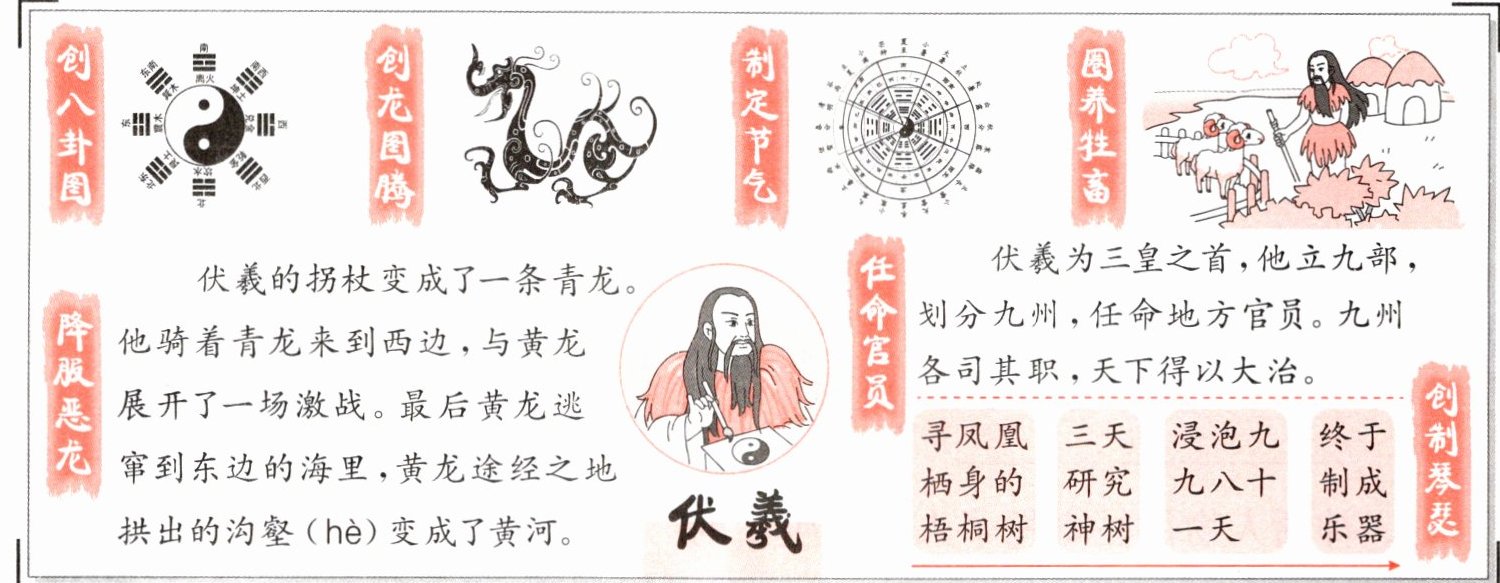 创八卦图
南
东南
西南
离火
巽木
坤土
东
震木
兑金
西
艮土
乾金
坎水
东北
西北
北
创龙图腾
制定节气
圈养牲畜
降服恶龙
伏羲的拐杖变成了一条青龙。
他骑着青龙来到西边，与黄龙
展开了一场激战。最后黄龙逃
窜到东边的海里，黄龙途经之地
拱出的沟壑（hè）变成了黄河。
伏羲
任命官员
伏羲为三皇之首，他立九部，
划分九州，任命地方官员。九州
各司其职，天下得以大治。
寻凤凰
栖身的
梧桐树
三天
研究
神树
浸泡九
九八十
一天
终于
制成
乐器
创制琴瑟